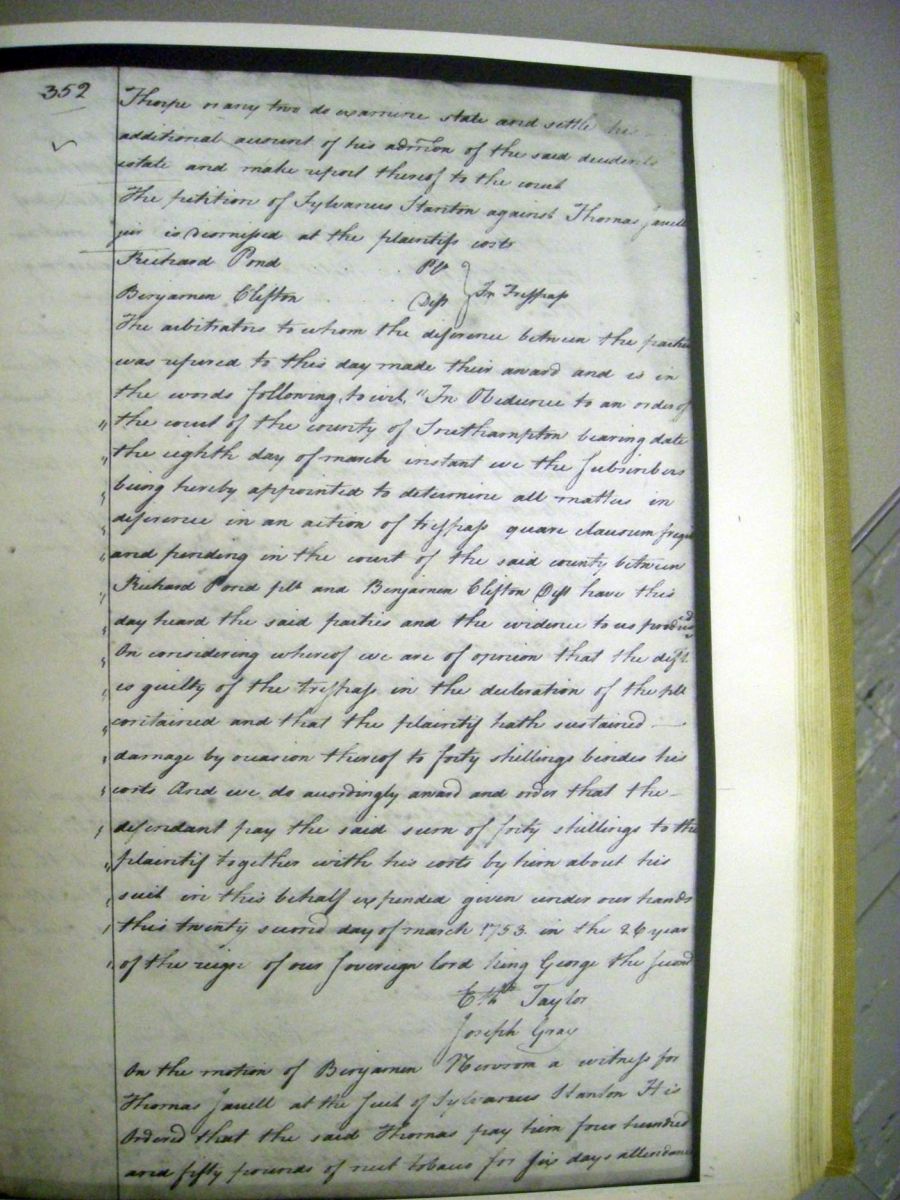 352
Thorpe or any two do examine state and settle his
additional account of his admĩon of the said decedents
estate and make report thereof to the court
The petition of Sylvanus Stanton against Thomas Jarrell
jur is dismissed at the plaintifs costs
Richard Pond Plt
Benjamen Clifton Deft } In Trespass
The arbitrators to whom the diference between the parties
was refered to this day made their award and is in
the words following, to wit, "In Obedience to an order of
" the court of the county of Southampton bearing date
" the eighth day of march instant we the Subscribers
" being hereby appointed to determine all matters in
" diference in an action of trespass quare clausum fregit
" and pending in the court of the said county between
" Richard Pond plt and Benjamen Clifton Deft have this
" day heard the said parties and the evidence to us produced
" On considering whereof we are of opinion that the deft
" is guilty of the trespass in the declaration of the plt
" contained and that the plaintif hath sustained —
" damage by occasion thereof to forty shillings besides his
" costs And we do accordingly award and order that the –
" defendant pay the said sum of forty shillings to the
" plaintif together with his costs by him about his
" suit in this behalf expended given under our hands
" this twenty second day of march 1753 in the 26 year
" of the reign of our Sovereign lord king George the Second
Ethd Taylor
Joseph Gray
On the motion of Benjamen Newsom a witness for
Thomas Jarrell at the Suit of Sylvanus Stanton It is
Ordered that the said Thomas pay him four hundred
and fifty pounds of nett tobacco for Six days attendance